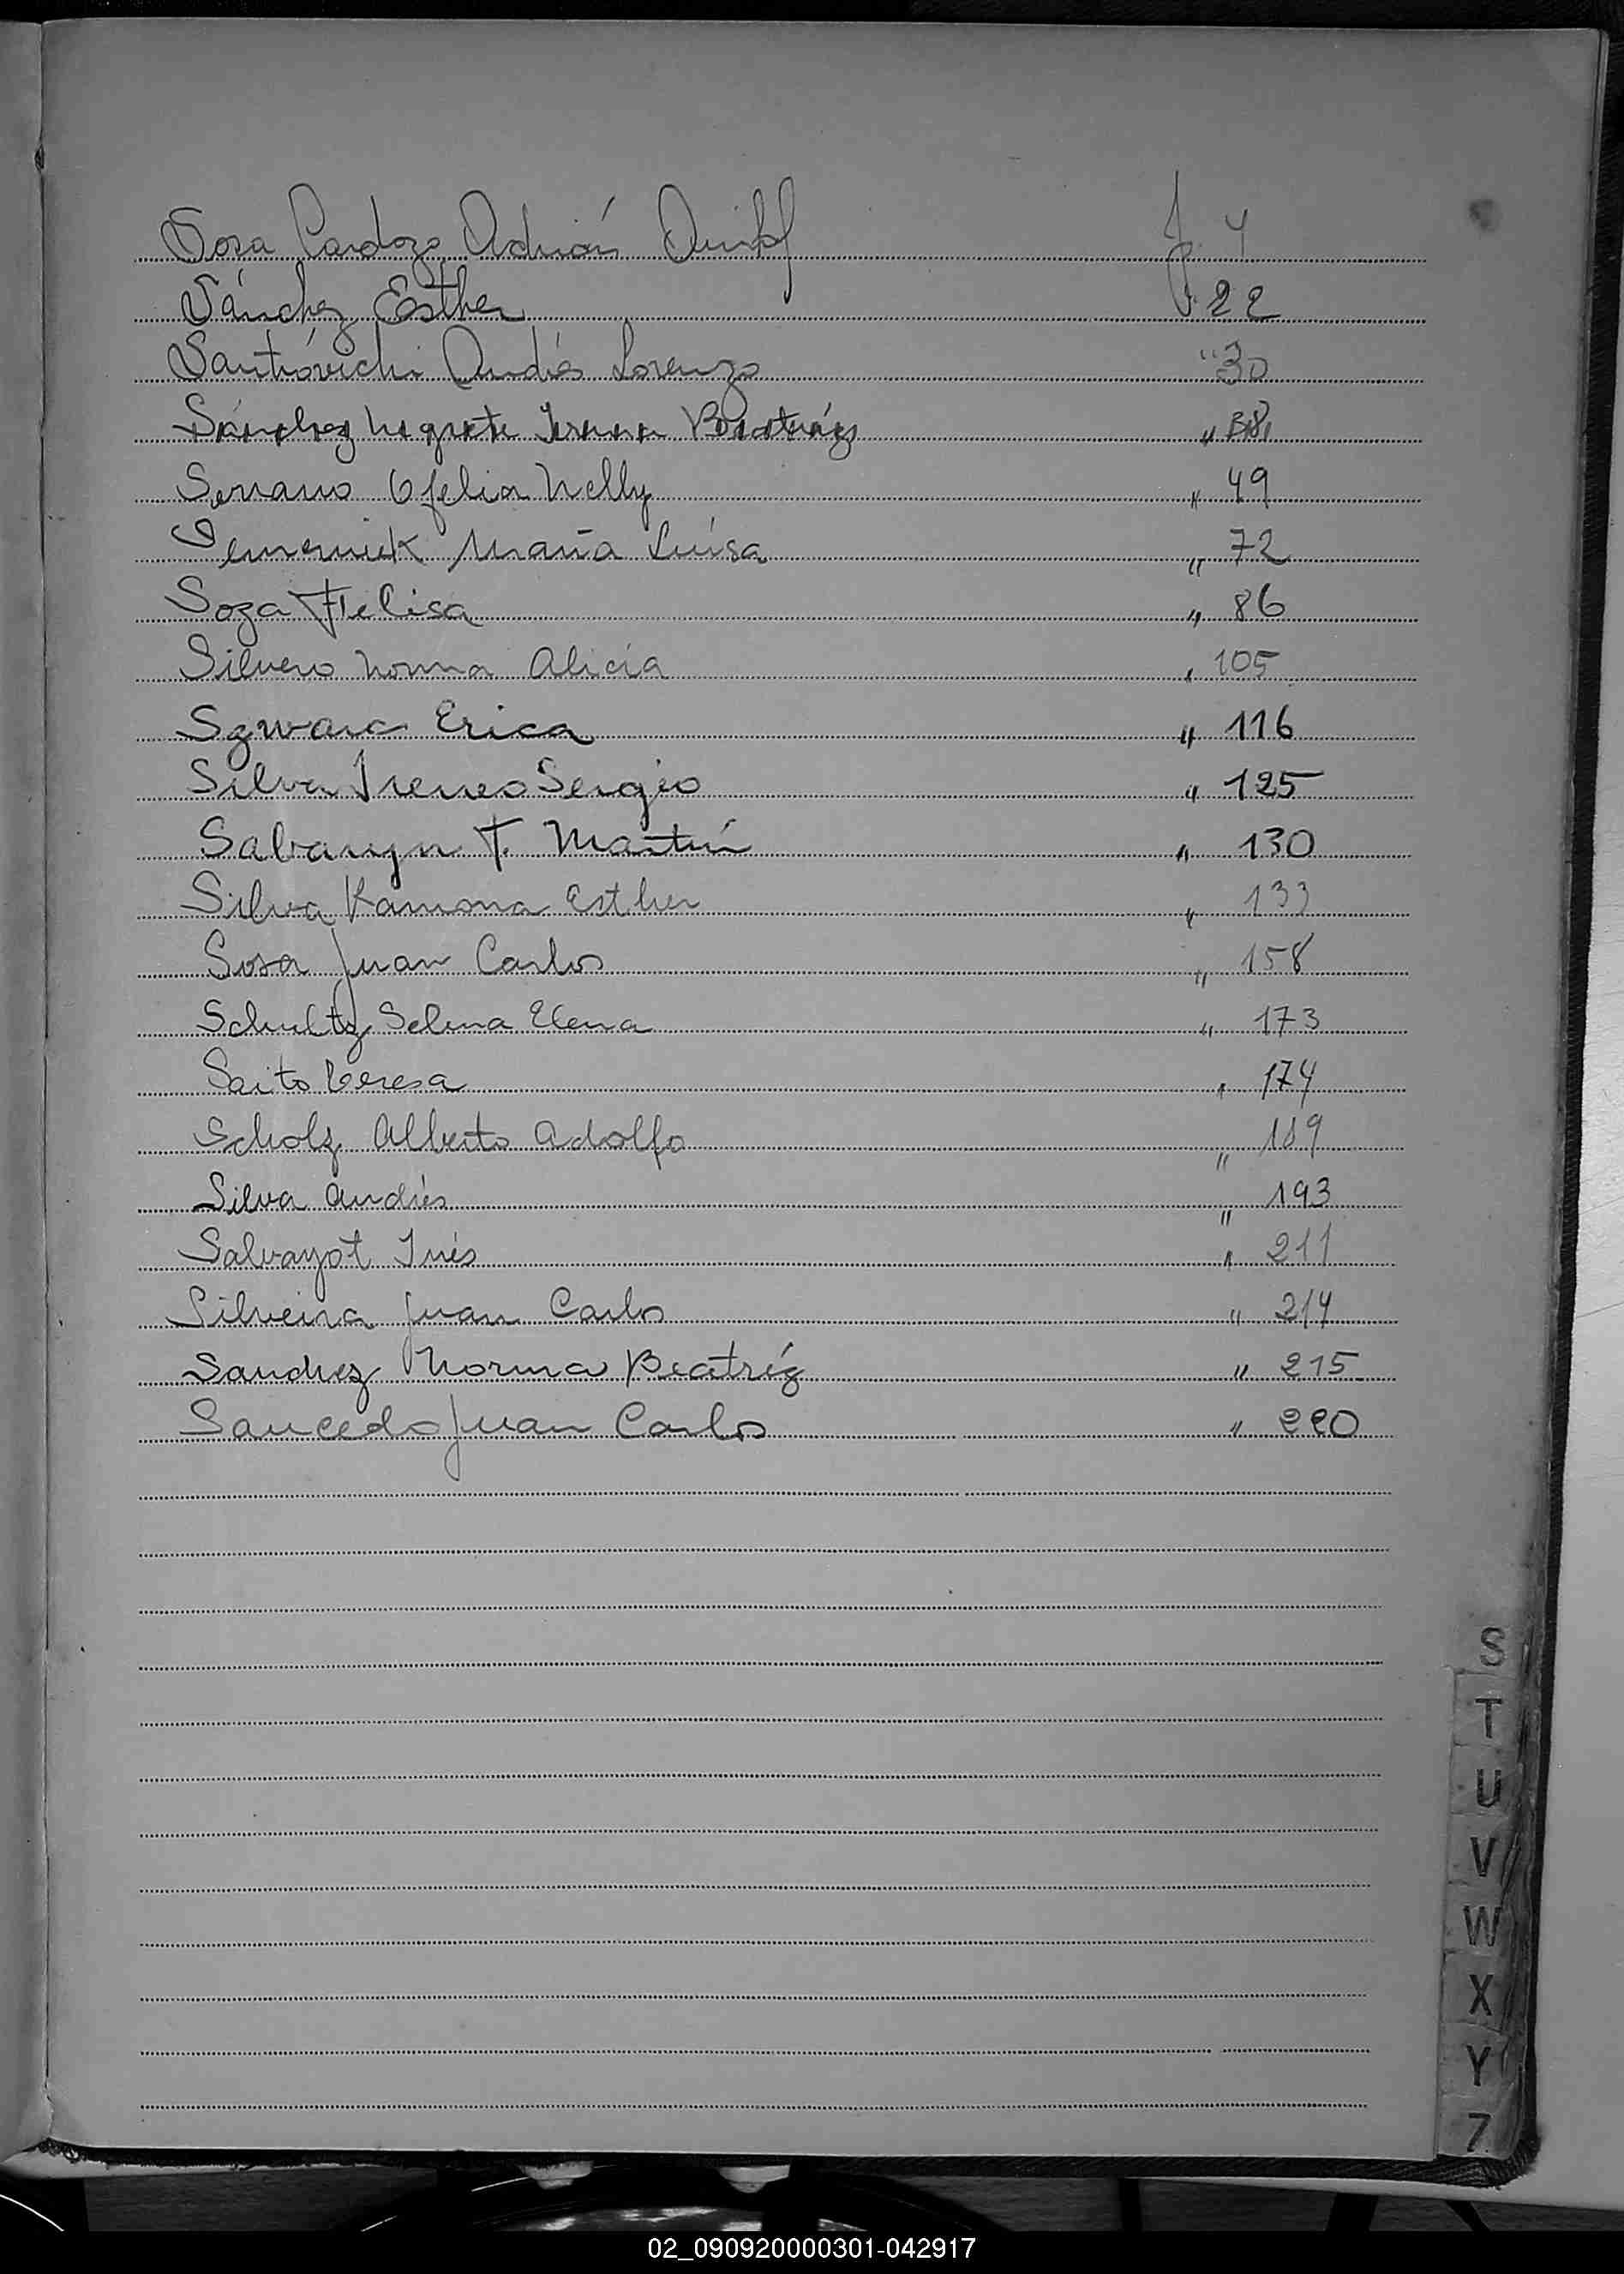 Sosa Cardozo Adrián F. 4
Sánchez Esther F. 22
Santróvichi Andrés Lorenzo " 30
Sánchez Negrete Beatríz " 38
Serrano Ofelia Nelly " 49
María Luísa " 72
Soza Felisa " 86
Silvero Norma Alicia " 105
Szwarc Erica " 116
Silva Ireneo Sergio " 125
T. Martín " 130
Silva Ramona Esther " 133
Sosa Juan Carlos " 158
Schultz Selma Elena " 173
Saito Teresa " 174
Scholz Alberto Adolfo " 189
Silva Andrés " 193
Salvayot Inés " 211
Silveira Juan Carlos " 214
Sanchez Norma Beatríz " 215
Saucedo Juan Carlos " 220
S
T
U
V
W
X
Y
Z
02_090920000301-042917